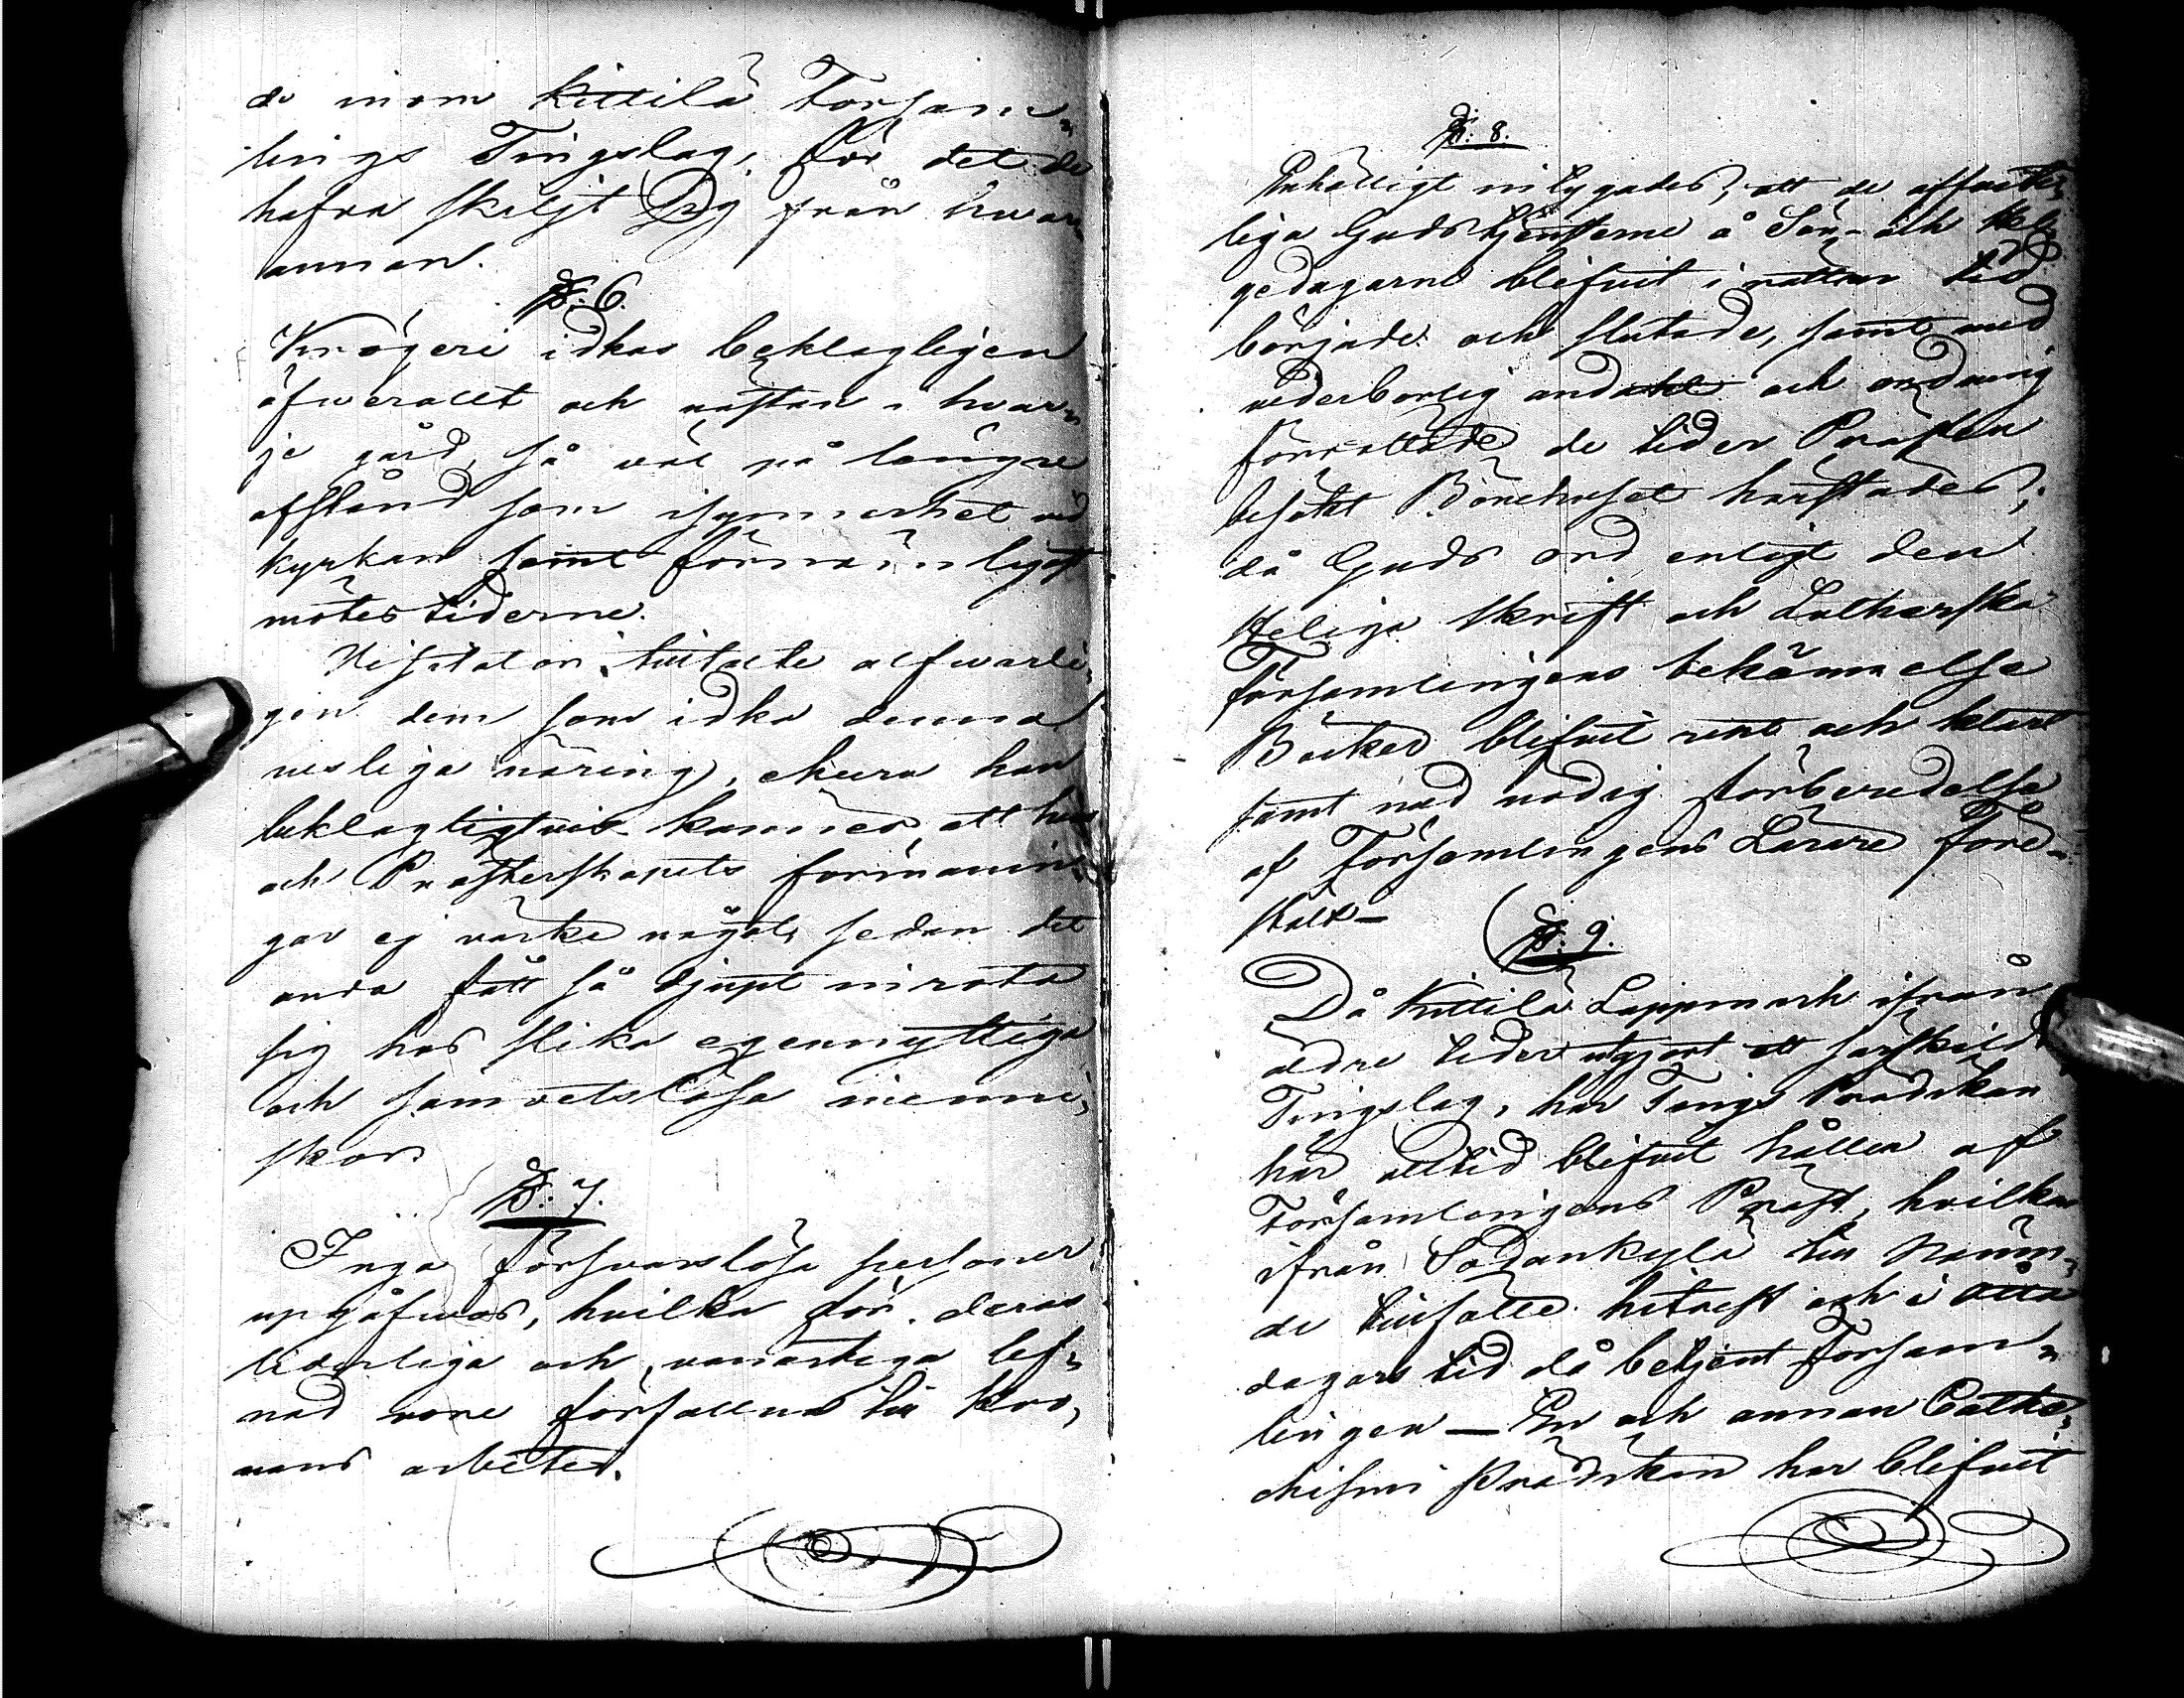 de inom Kittilä Församm„
lings Tingslag, för det de
hafva skiljt Sig från hwar„
annan.
§. 6.
Krögeri idkas beklagligen
öfwerallt och nästan i hwar„
je gård, så väl på längre
afstånd som isynnerhet vid
kyrkan samt förnämligast
mötestiderne.
Visitator tiltalte alfwarli„
gen dem som idka denna
usliga näring, ehuru han
beklagligtvis känner, att hans
och Prästerskapets förmanin„
gar ej värka något, sedan det
onda fått så djupt inrota
sig hos slika egennyttiga
och samvetslösa menni„
skor.
§. 7.
Inga försvarslösa personer
uppgåfwos, hvilka för deras
liderliga och vanartiga lef„
nad vore förfallna till Kro„
nans arbeten.
§. 8.
Enhälligt intygades, att de offent„
liga Gudstjensterne å Sön- och Hel„
gedagarne blifvit i rättan tid
började och slutade, samt med
vederbörlig andakt och ordning
förrättade de tider Prästen
besökt Bönehuset härstädes;
då Guds ord enligt den
Heliga Skrift och Lutherska
Församlingens bekännelse
Böcker blifvit rent och klart
samt med nödig förberedelse
af Församlingens Lärare före„
stält —
§. 9.
Då Kittilä Lappmark ifrån
äldre tider utgjort ett särskildt
Tingslag, har Tings Predikan
här alltid blifvit hållen af
Församlingens Präst, hvilken
ifrån Sodankylä till nämn„
de tillfälle hitrest och i åtta
dagars tid då betjent Församm„
lingen — En och annan Cathe„
chismi Predikan har blifvit